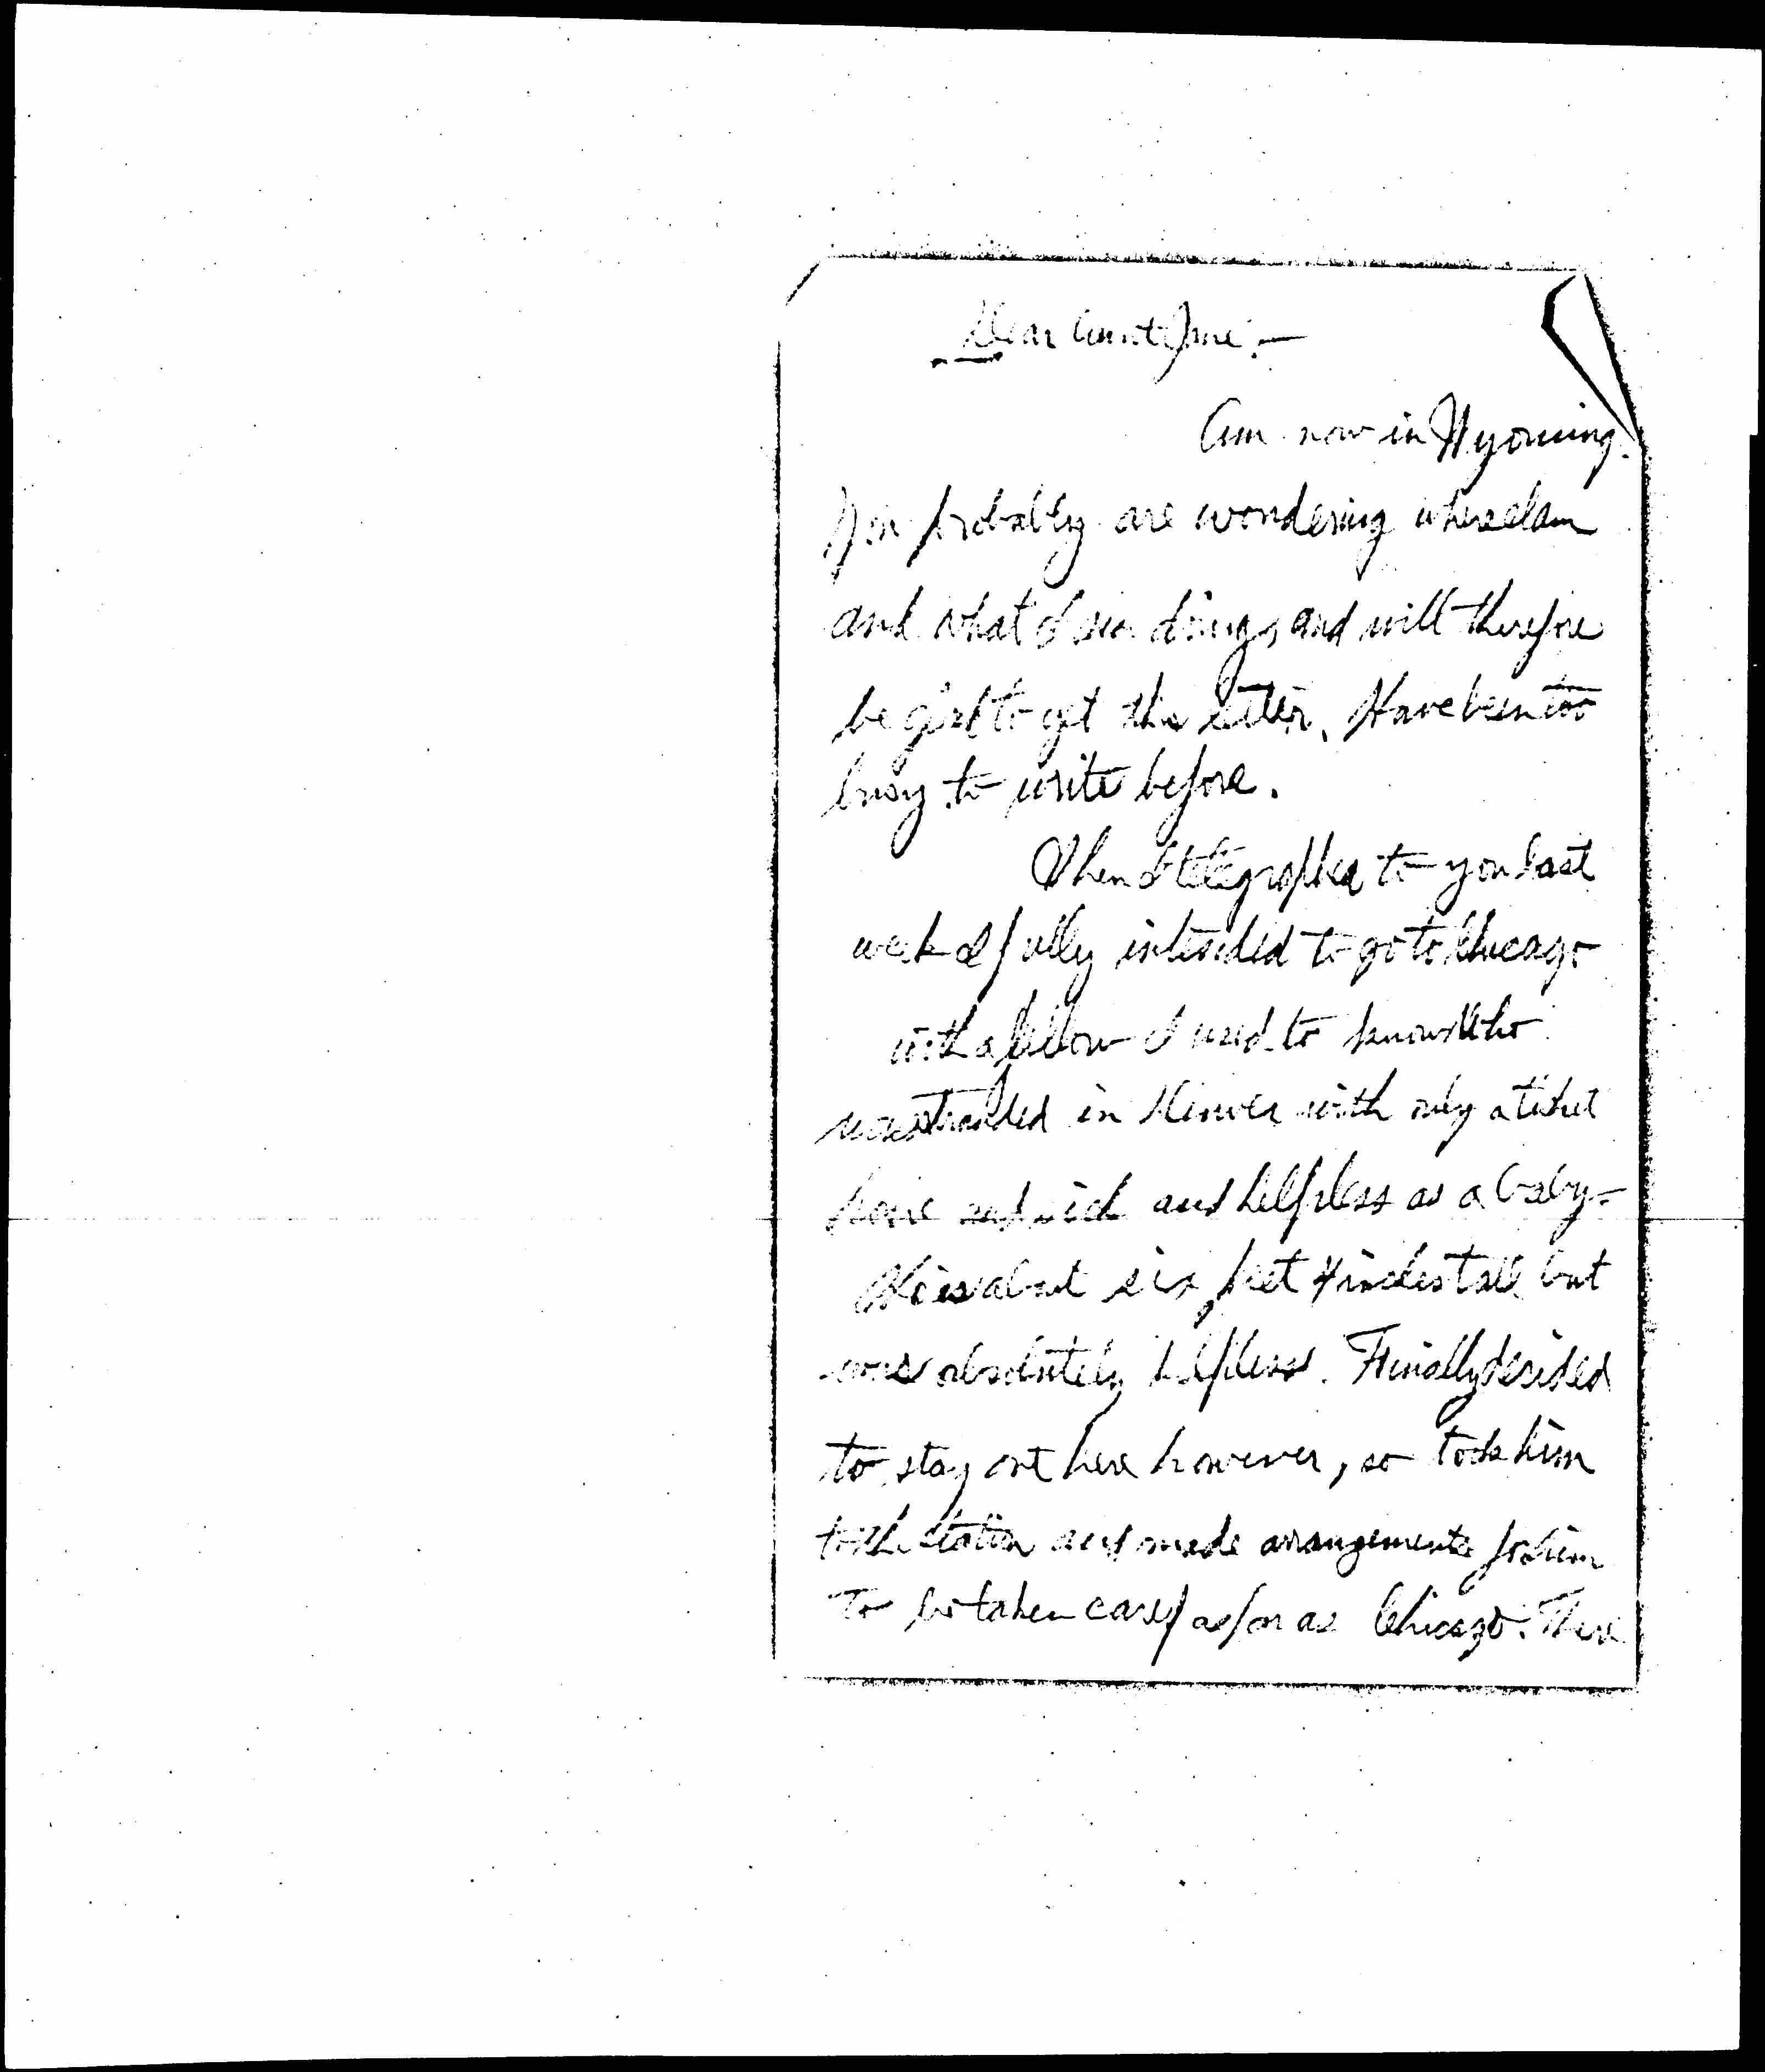 Dear Aunt June:—
Am now in Wyoming.
You probably are wondering where I am
and what I am doing, and will therefore
be glad to get this letter. Have been too
busy to write before.
When I telegraphed to you last
week I fully intended to go to Chicago
with a fellow I used to know who
was stranded in Denver with only a ticket
home and sick and helpless as a baby—
He is about six feet 4 inches tall but
was absolutely helpless. Finally decided
to stay out here however, so took him
to the station and made arrangements for him
to be taken care of as far as Chicago. There